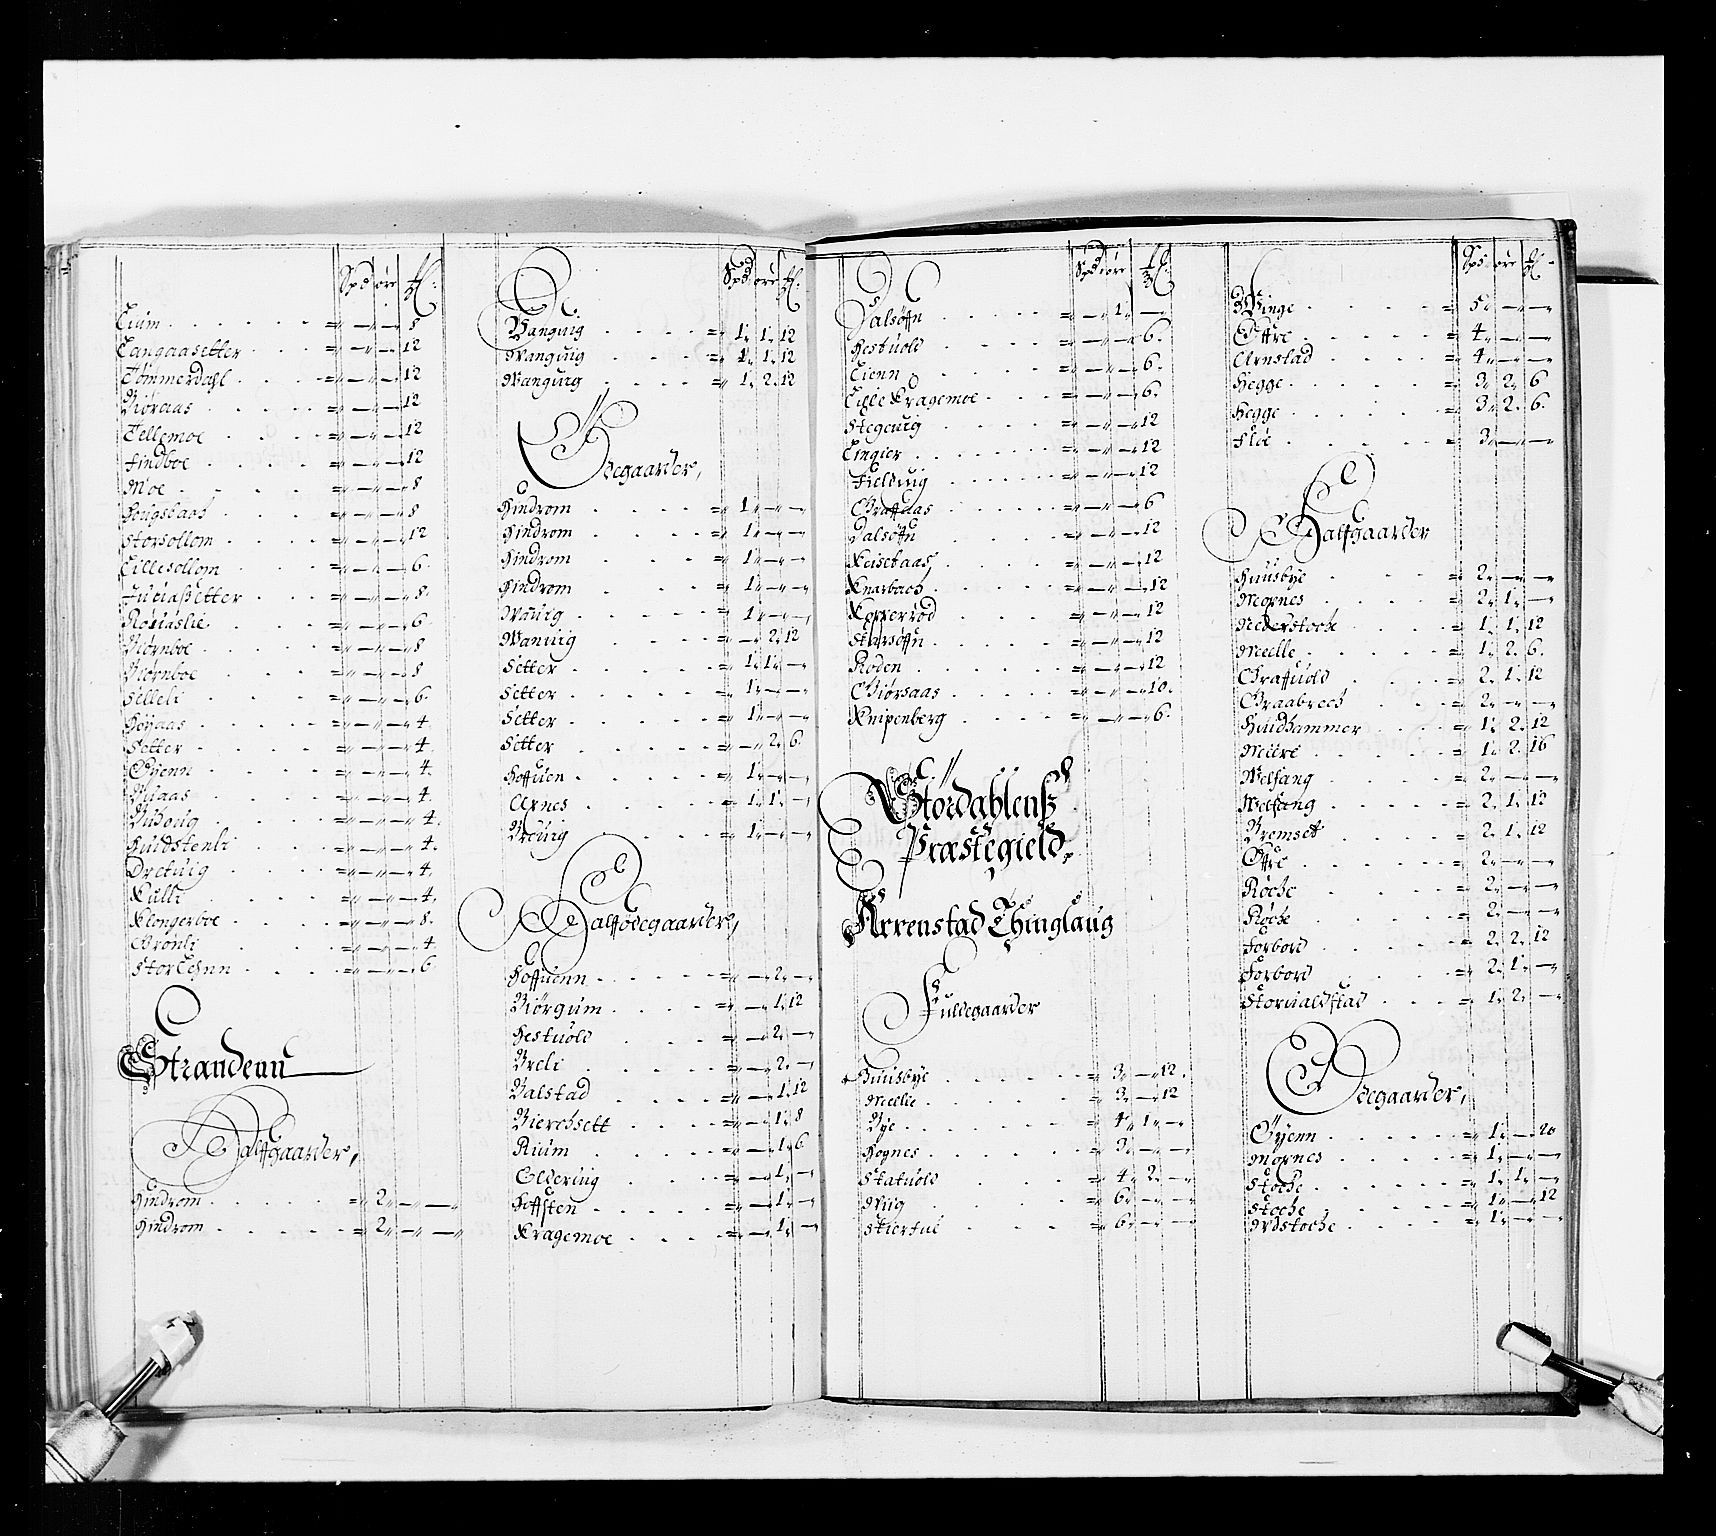 Spd øre ₰.
Lium . . . . . . =„ —„ —„ 8
Langaasetter . . . =„ —„ —„ 12
Tømmerdahl . . . =„ —„ —„ 12
Biøraas . . . . =„ —„ —„ 12
Tellemoe . . . . =„ —„ —„ 12
Findboe . . . . =„ —„ —„ 12
Moe . . . . =„ —„ —„ 8
Hougsbaas . . . =„ —„ —„ 8
Storsollom . . . =„ —„ —„ 12
Lillesollom . . . =„ —„ —„ 6.
=„ —„ —„ 8.
=„ —„ —„ 6
Biørnboe . . . . =„ —„ —„ 8
Biørnboe . . . =„ —„ —„ 8
Selleli . . . . =„ —„ —„ 6.
Høyaas . . . . =„ —„ —„ 4.
Setter . . . . =„ —„ —„ 4.
Øyenn . . . . =„ —„ —„ 4.
Aasaas . . . . =„ —„ —„ 4.
Buduig . . . . =„ —„ —„ 4.
Huidstenli . . . =„ —„ —„ 4.
Dretuig . . . . =„ —„ —„ 4.
Kulli . . . . =„ —„ —„ 4.
Klongerboe . . . =„ —„ —„ 8.
Grønli . . . . =„ —„ —„ 4.
Storlehnn . . . . =„ —„ —„ 6.
Strandenn
Halffgaarder,
Hindrom . . . . =„ 2„ —„ —„
Hindrom . . . . =„ 2„ —„ —„
Spd øre ₰.
Wanguig . . . . =„ 1„ 1„ 12
Wanguig . . . . =„ 1„ 1„ 12
Wanguig . . . . =„ 1„ 2„ 12
Ødegaarder,
Hindrom . . . . =„ 1„ —„ —„
Hindrom . . . . =„ 1„ —„ —„
Hindrom . . . . =„ 1„ —„ —„
Hindrom . . . . =„ 1„ —„ —„
Wanuig . . . . =„ 1„ —„ —„
Wanuig . . . . =„ —„ 2„ 12
Setter . . . . =„ 1„ 1„ —„
Setter . . . . =„ 1„ —„ —„
Setter . . . . =„ 1„ —„ —„
Setter . . . . =„ —„ 2„ 6.
Hoffuen . . . . =„ 1„ —„ —„
Axnes . . . . =„ 1„ 1„ —„
Breuig . . . . =„ 1„ —„ —„
Halffødegaarder,
Hoffuenn . . . . =„ —„ 2„ —„
Biørgum . . . . =„ —„ 1„ 12
Hestuold . . . . =„ —„ 2„ —„
Breli . . . . =„ —„ 2„ —„
Balstad . . . . =„ —„ 1„ 12
Bierchsett . . . . =„ —„ 1„ 8
Rium . . . . =„ —„ 1„ 6
Olderuig . . . . =„ —„ 1„ —„
Hoffsten . . . . =„ —„ 1„ —„
Kragemoe . . . . =„ —„ 1„ —„
Spd øre ₰.
Dalsøffn . . . . =„ —„ 1„ —
Hestuold . . . . =„ —„ —„ 6.
Lienn . . . . =„ —„ —„ 6.
Lille Kragemoe . . . =„ —„ —„ 6.
Stegeuig . . . . =„ —„ —„ 12
Lingier . . . . =„ —„ —„ 12
Fielduig . . . . =„ —„ —„ 12
=„ —„ —„ 6
Dalsøffn . . . . =„ —„ —„ 12
Keisebaas . . . . =„ —„ —„ 12
Knarbach . . . . =„ —„ —„ 12
Kopperrod . . . . =„ —„ —„ 12
Starsøffn . . . . =„ —„ —„ 12
Roden . . . . =„ —„ —„ 12
Giørsaas . . . . =„ —„ —„ 10.
Knipenberg . . . . =„ —„ —„ 6.
Størdahlens
Præstegield.
Arrenstad Thinglaug
Fuldegaarder
Huusbye . . . . =„ 3„ —„ 12.
Meelie . . . . =„ 3„ —„ 12
Bye . . . . =„ 4„ 1„ —„
Hognes . . . . =„ 3„ —„ —„
Skatuold . . . . =„ 4„ 2„ —„
Wiig . . . . =„ 6„ —„ —„
Skierfue . . . . =„ 6„ —„ —„
Spd øre ₰.
Winge . . . . =„ 5„ —„ —„
Øffre . . . . =„ 4„ —„ —„
Arnstad . . . . =„ 4„ —„ —„
Hegge . . . . =„ 3„ 2„ 6
Hegge . . . . =„ 3„ 2„ 6.
Floe . . . . =„ 3„ —„ —„
Halffgaarder
Huusbye . . . . =„ 2„ —„ —„
Moxnes . . . . =„ 2„ 1„ —„
Nederstoche . . . . =„ 1„ 1„ 12
Meelle . . . . =„ 1„ 2„ 6.
Graffuold . . . . =„ 2„ 1„ 12
Graabrech . . . . =„ 2„ —„ —„
Huidhammer . . . =„ 1„ 2„ 12
Meere . . . . =„ 1„ 2„ 16
Welfang . . . . =„ 2„ —„ —„
Welfang . . . . =„ 2„ 1„ 12
Bremset . . . . =„ 2„ 1„ 12
Øffre . . . . =„ 2„ —„ —„
Røche . . . . =„ 2„ —„ —„
Røche . . . . =„ 2„ —„ —„
Forbord . . . . =„ 2„ 2„ 12
Forbord . . . . =„ 2„ 1„ —„
Storualdstad . . . =„ 1„ 2„ —„
Ødegaarder,
Øyenn . . . . =„ 1„ —„ 20
Moxnes . . . . =„ 1„ —„ —„
Stoche . . . . =„ 1„ 1„ —„
Stoche . . . . =„ 1„ —„ 12
Ydstoche . . . . =„ 1„ —„ —„